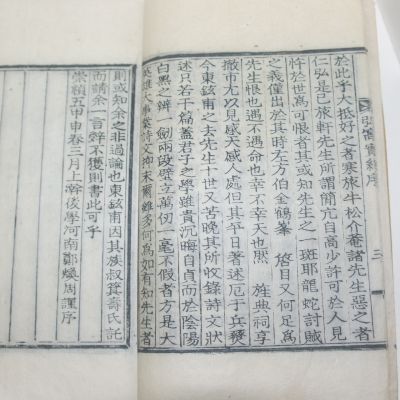 於此乎大抵好之者寒旅牛松介菴諸先生惡之者
仁弘是已旅軒先生所謂簡亢自高少許可於人見
忤於世爲可恨者其或知先生之一斑耶龍蛇討賊
之義僅出於其時左方伯金鶴峯 啓目又何足爲
先生恨也遇不遇命也幸不幸天也然 旌典祠享
撤市尤以見感天感人處但其平日著述厄于兵燹
今東鉉甫之去先生十世又苦晚其所收錄詩文狀
述只若干篇蓋君子之學雖貴沉晦自貞而於陰陽
白黑之辨一劍兩段壁立萬仞一毫不假者方是大
英雄人事業詩文抑末爾雖多何爲如有知先生者
實紀序
三
則或知余之非過論也東鉉甫因其族叔壽氏託
而請余一言辭不獲則書此可乎
崇禎五甲申春三月上澣後學河南鄭煥周謹序